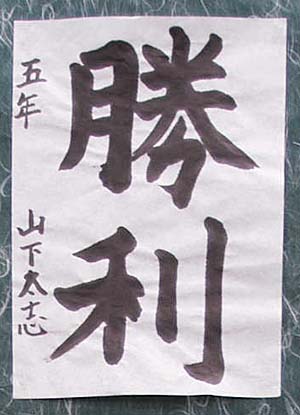 勝利
五年 山下太志